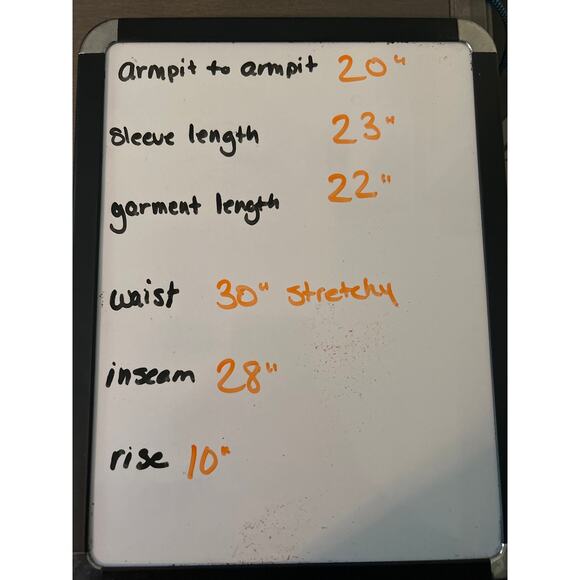 armpit to armpit 20"
sleeve length 23"
garment length 22"
waist 30" stretchy
inseam 28"
rise 10"